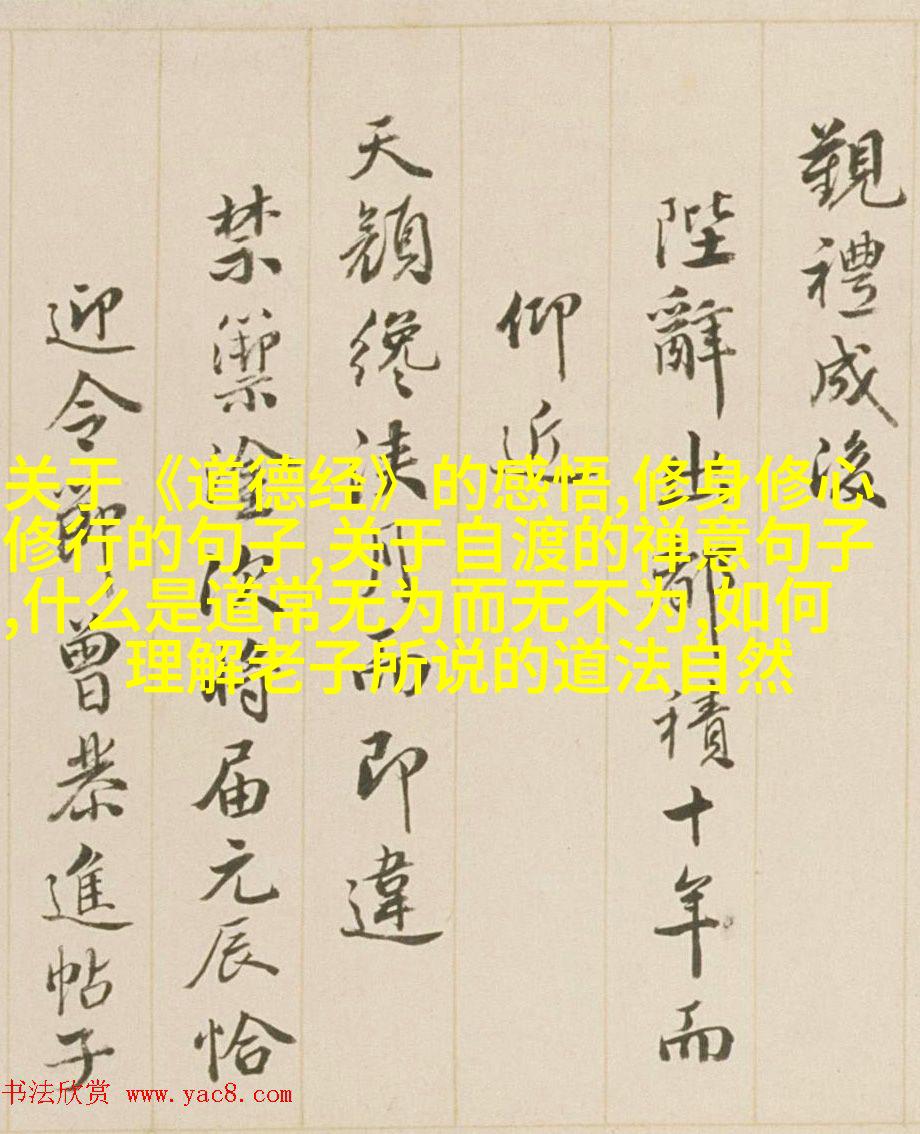 觀禮成後
陛辭出都積十年而
仰近
天顏纔浹月而即違
禁籞塗次將届元辰恰
迎令節曾恭進帖子
关于《道德经》的感悟,修身修心
修行的句子,关于自渡的禅意句子
,什么是道常无为而无不为,如何
理解老子所说的道法自然
书法欣赏 www.yac8.com